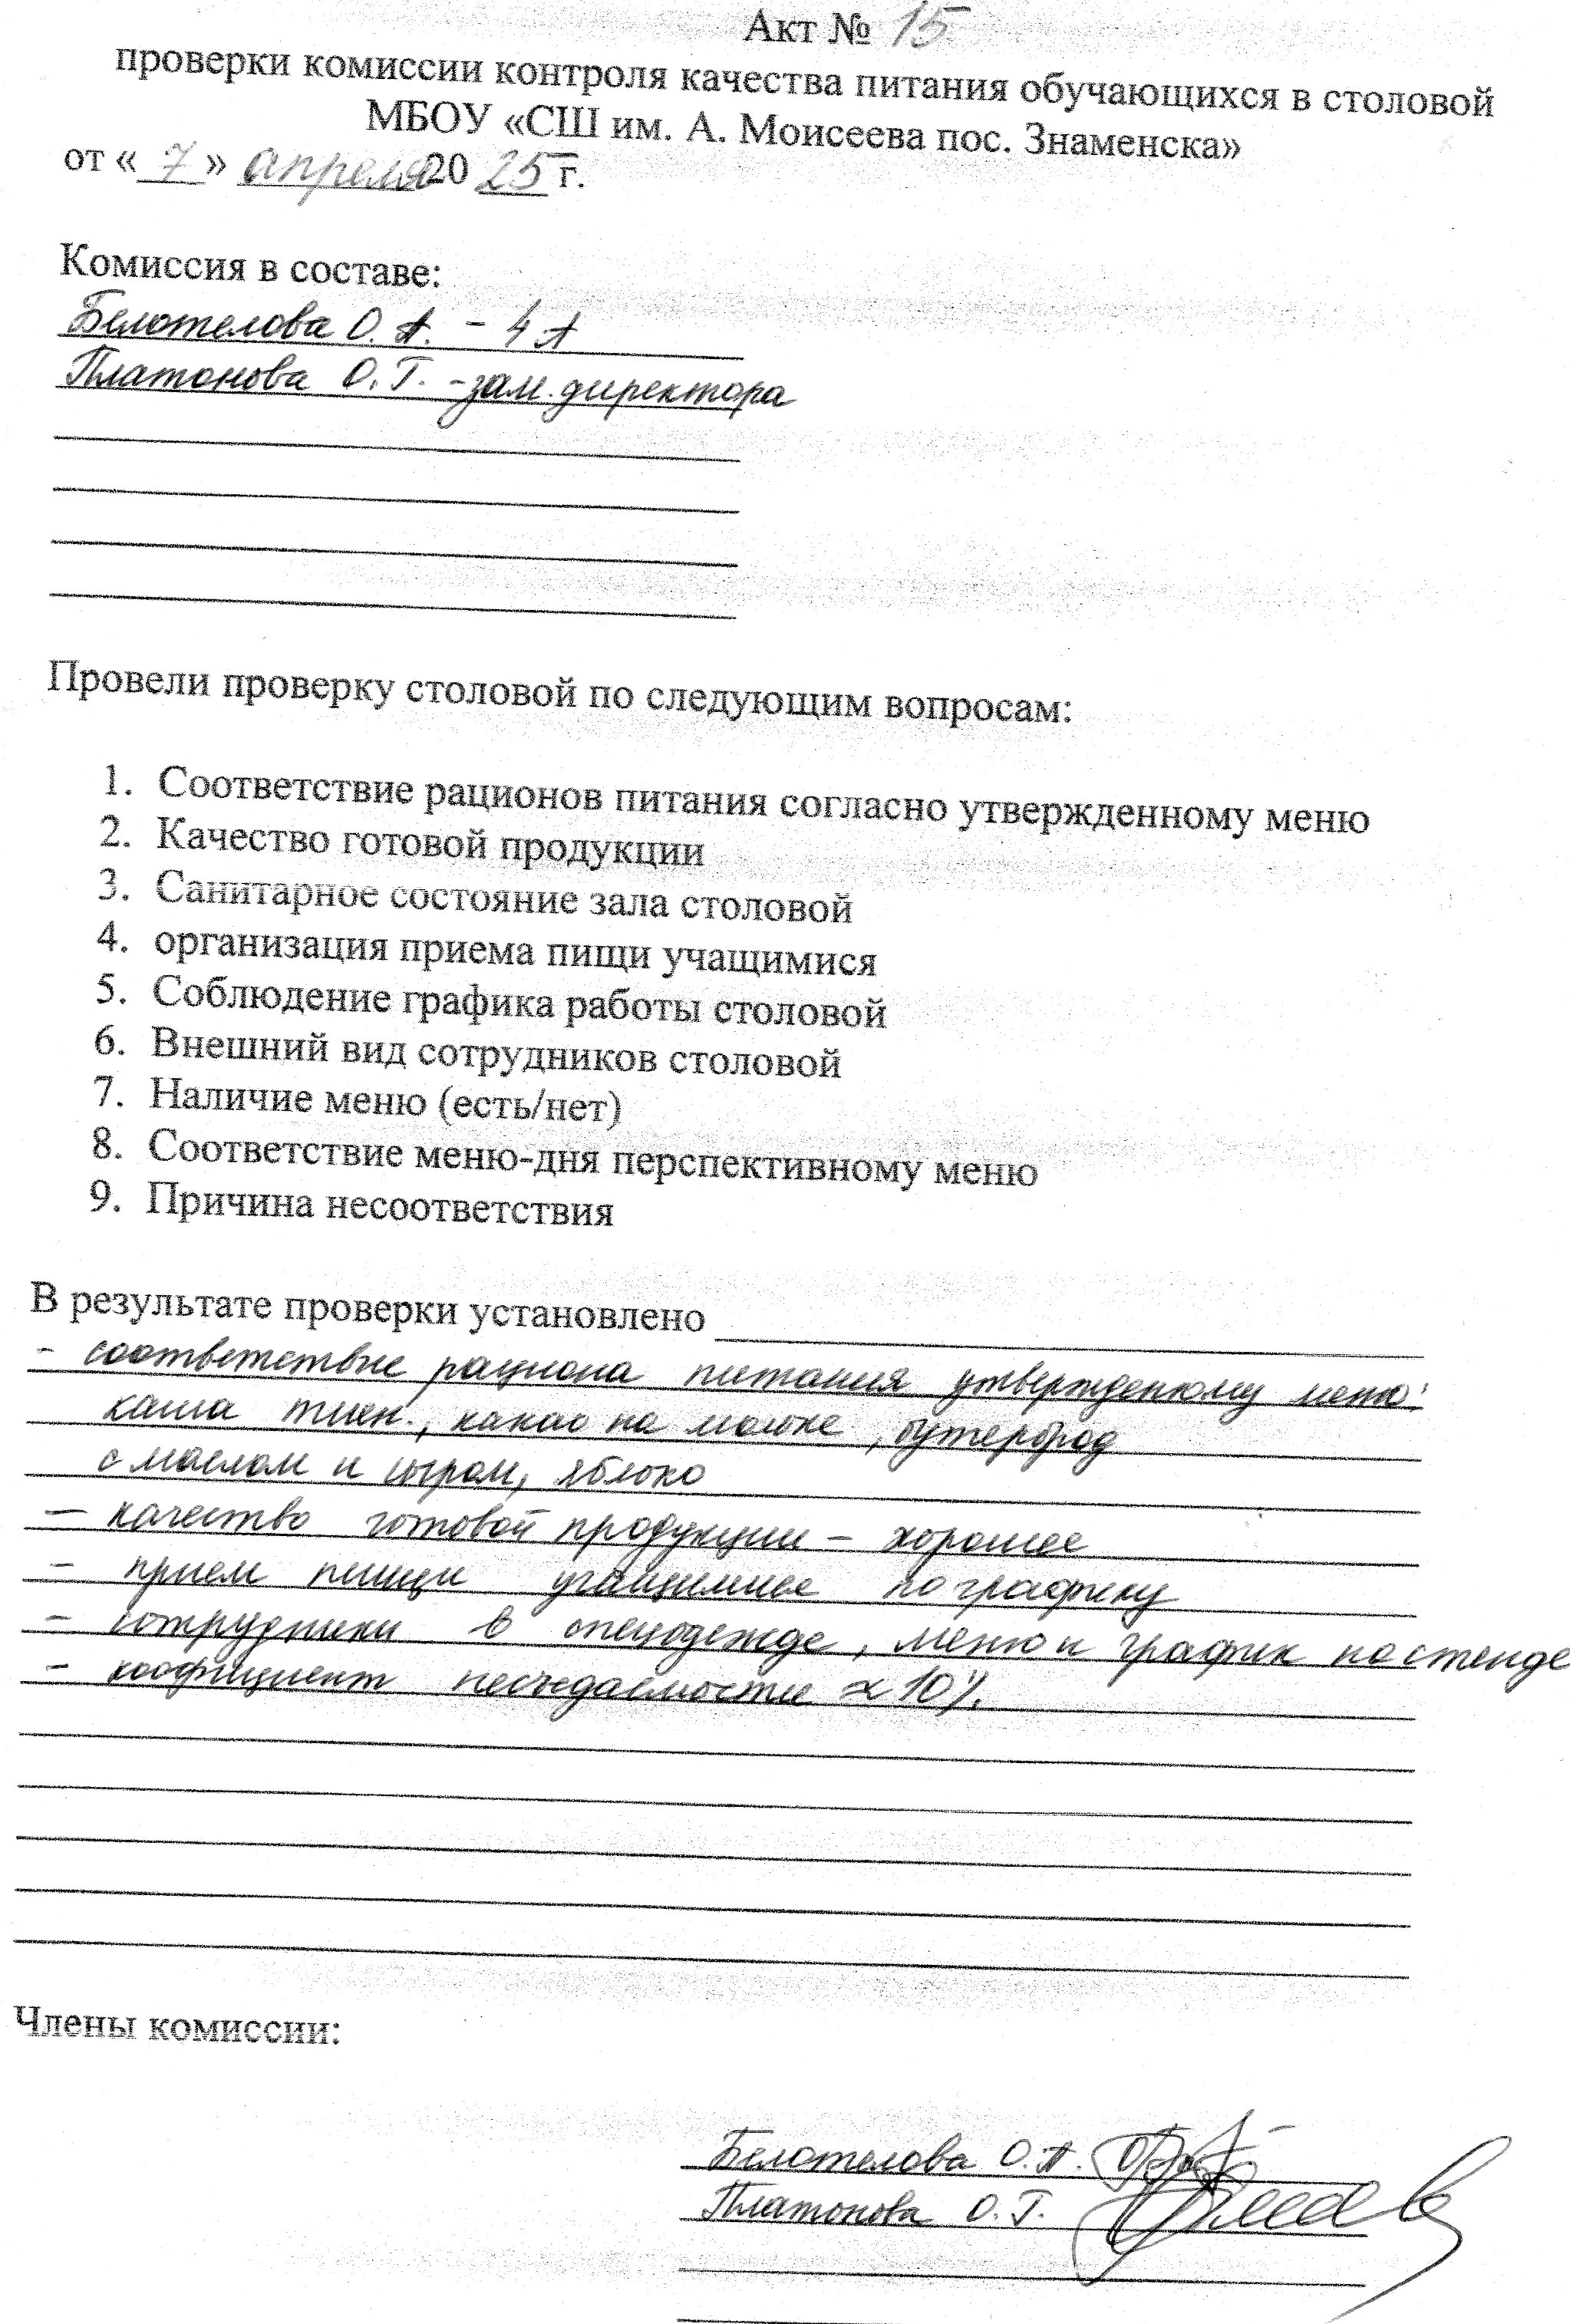 Акт № 15
проверки комиссии контроля качества питания обучающихся в столовой
МБОУ «СШ им. А. Моисеева пос. Знаменска»
от «7» апреля 2025 г.
Комиссия в составе:
Белотелова О. А. - 4 А
Платонова О. Г. - зам. директора
Провели проверку столовой по следующим вопросам:
1. Соответствие рационов питания согласно утвержденному меню
2. Качество готовой продукции
3. Санитарное состояние зала столовой
4. организация приема пищи учащимися
5. Соблюдение графика работы столовой
6. Внешний вид сотрудников столовой
7. Наличие меню (есть/нет)
8. Соответствие меню-дня перспективному меню
9. Причина несоответствия
В результате проверки установлено
- соответствие рациона питания утвержденному меню:
каша , какао на молоке, бутерброд
с маслом и сыром, яблоко
- качество готовой продукции - хорошее
- прием пищи учащимися по графику
- сотрудники в спецодежде, меню и график на стенде
- коофициент несъедаемости ≈ 10%.
Члены комиссии:
Белотелова О. А.
Платонова О. Г.